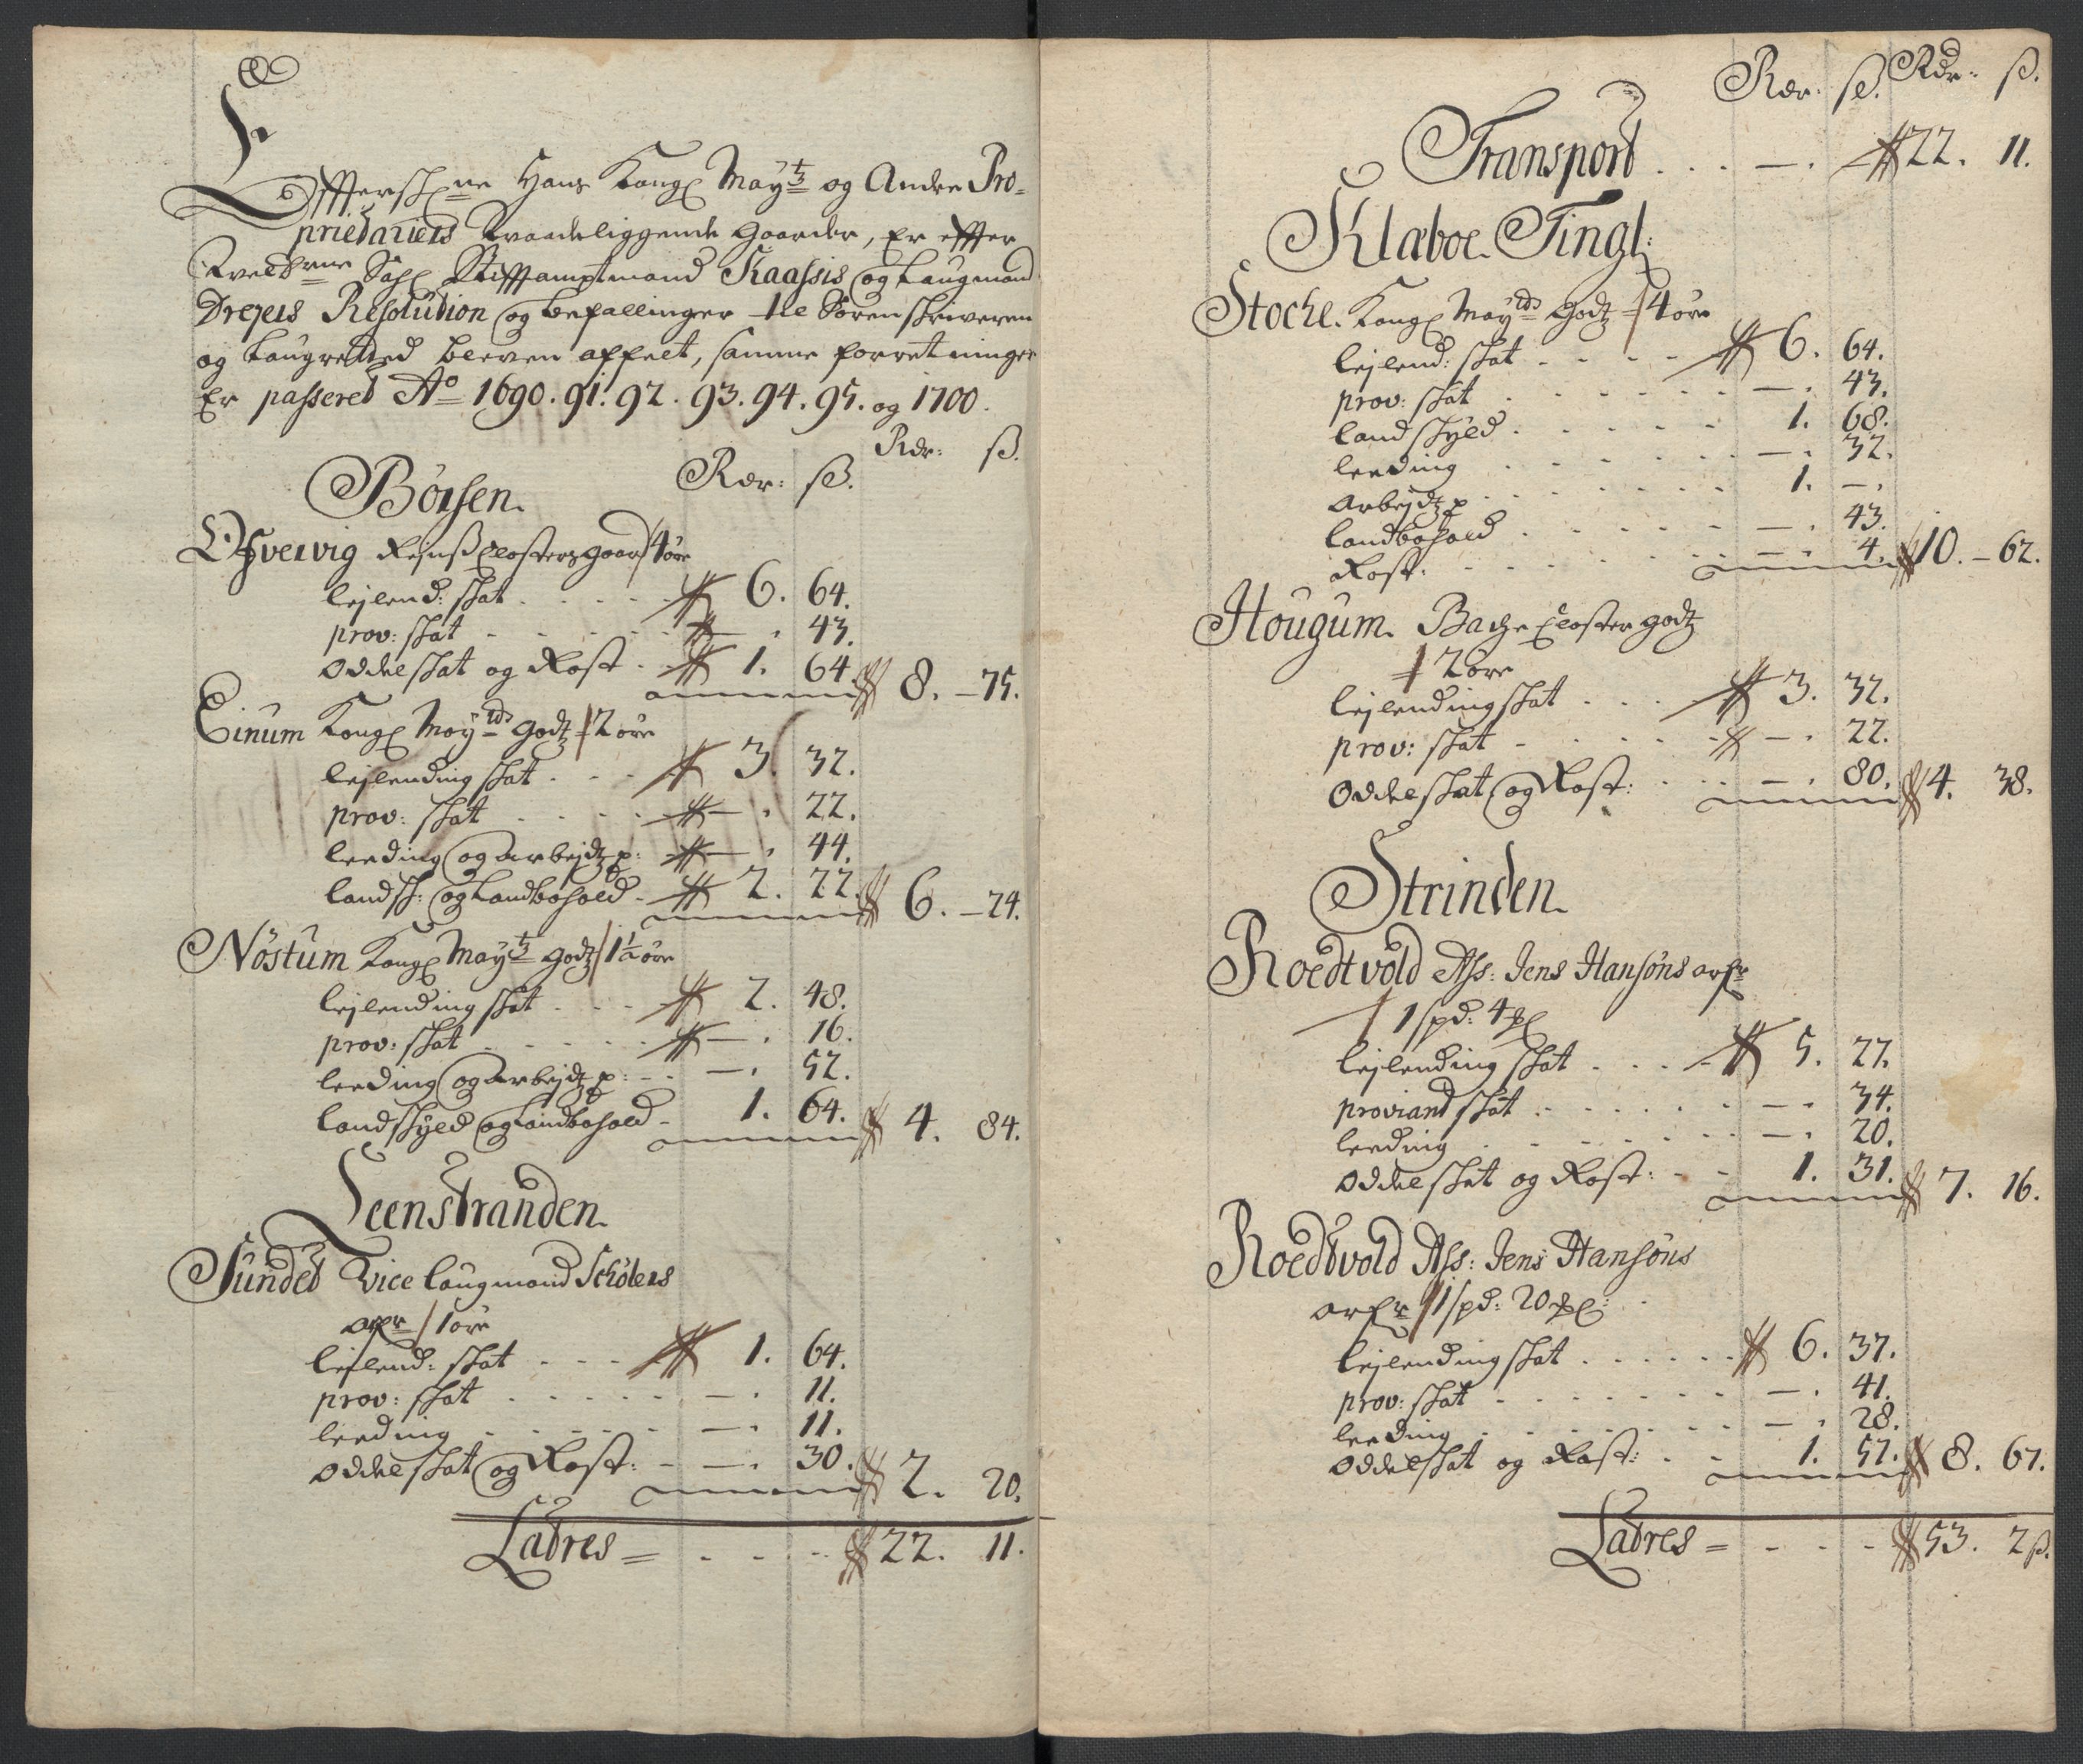 Effterschne Hans Kongl May:ts og Andre Pro-
priedariers Skraadeliggende gaarder, Er effter
Sahl Stifftamptmand Kaassis og Laugmand
Drejers Resolution og befallinger til Sorenskriveren
og Laugretted bleven affelt, samme forretninger
Er passeret Ao 1690. 91. 92. 93. 94. 95. og 1700.
Rdr: ß. Rdr: ß.
Børsen.
Øfvervig Reins Closters gaard / 4 øre
lejlend: skat . . . 6. 64.
prov: skat . . . — . 43.
oddelskat og Rost . 1. 64. 8. – 75.
Einum Kongl May:ts godtz / 2 øre
lejlending skat . . . 3. 32.
prov: skat . . . — . 22.
leeding og arbejdtzp: — . 44.
landsk: og Landbohold - 2. 22. 6. – 24.
Nøstum Kongl May:ts godtz / 1½ øre
lejlending skat . . . 2. 48.
prov: skat . . . — . 16.
leeding og arbejdtzp: — . 52.
landskyld og Landbohold - 1. 64. 4. 84.
Leenstranden.
Sundet Vice laugmand Schølers
arfr / 1 øre
lejlend: skat . . . 1. 64.
prov: skat . . . — . 11.
leeding . . . — . 11.
oddelskat og Rost: - — . 30. 2. 20.
Latres = . . . 22. 11.
Rdr: ß. Rdr: ß.
Transport . . . — . 22. 11.
Klæboe Tingl:
Stoche. Kongl May:ts Godtz / 4 øre
lejlend: skat . . . 6. 64.
prov: skat . . . — . 43.
landskyld . . . 1. 68.
leeding . . . — . 32.
arbejdtzp . . . 1. — .
landbohold . . . — . 43.
Rost: . . . — . 4. 10. – 62.
Hougum. Bache Closter godtz
/ 2 øre
lejlendingskat . . . 3. 32.
prov: skat . . . — . 22.
oddelskat og Rost: . . — . 80. 4. 38.
Strinden.
Roedtvold Ass: Jens Hansøns arfr
/ 1 spd: 4 ℔
lejlending skat . . . 5. 27.
proviant skat . . . — . 34.
leeding . . . — . 20.
oddelskat og Rost: - - 1. 31. 7. 16.
Roedtvold Ass: Jens Hansøns
arfr / 1 spd: 20 ℔:
lejlendingskat . . . 6. 37.
prov: skat . . . — . 41.
leeding . . . — . 28.
oddelskat og Rost: . . 1. 57. 8. 67.
Latres = - - - 53. 2 ß.